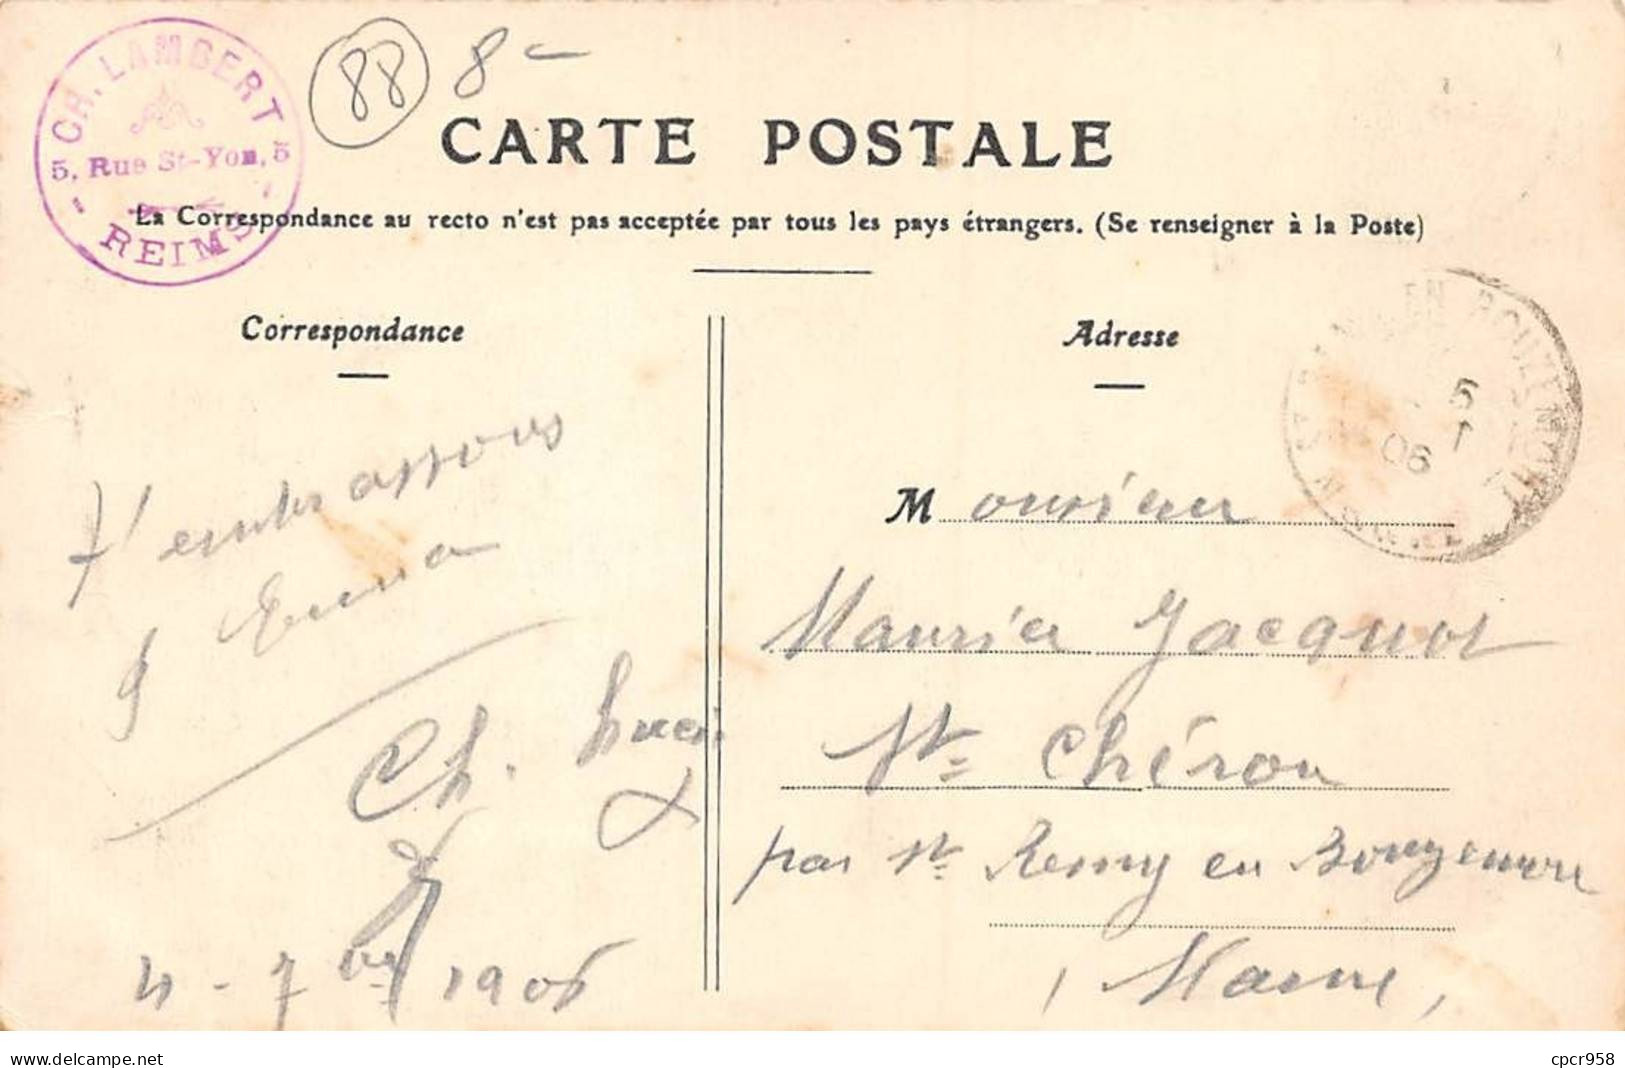 CH. LAMBERT
5, Rue St-Yon, 5
- REIMS -
88 8 -
CARTE POSTALE
La Correspondance au recto n'est pas acceptée par tous les pays étrangers. (Se renseigner à la Poste)
Correspondance
Adresse
5
1
06
T'embrassons
Emma
Ch.
4 - 7bre 1906
Monsieur
Maurice Jacquot
St Chéron
par St Remy en Bouzemont
Marne
delcampe.net
cpcr958